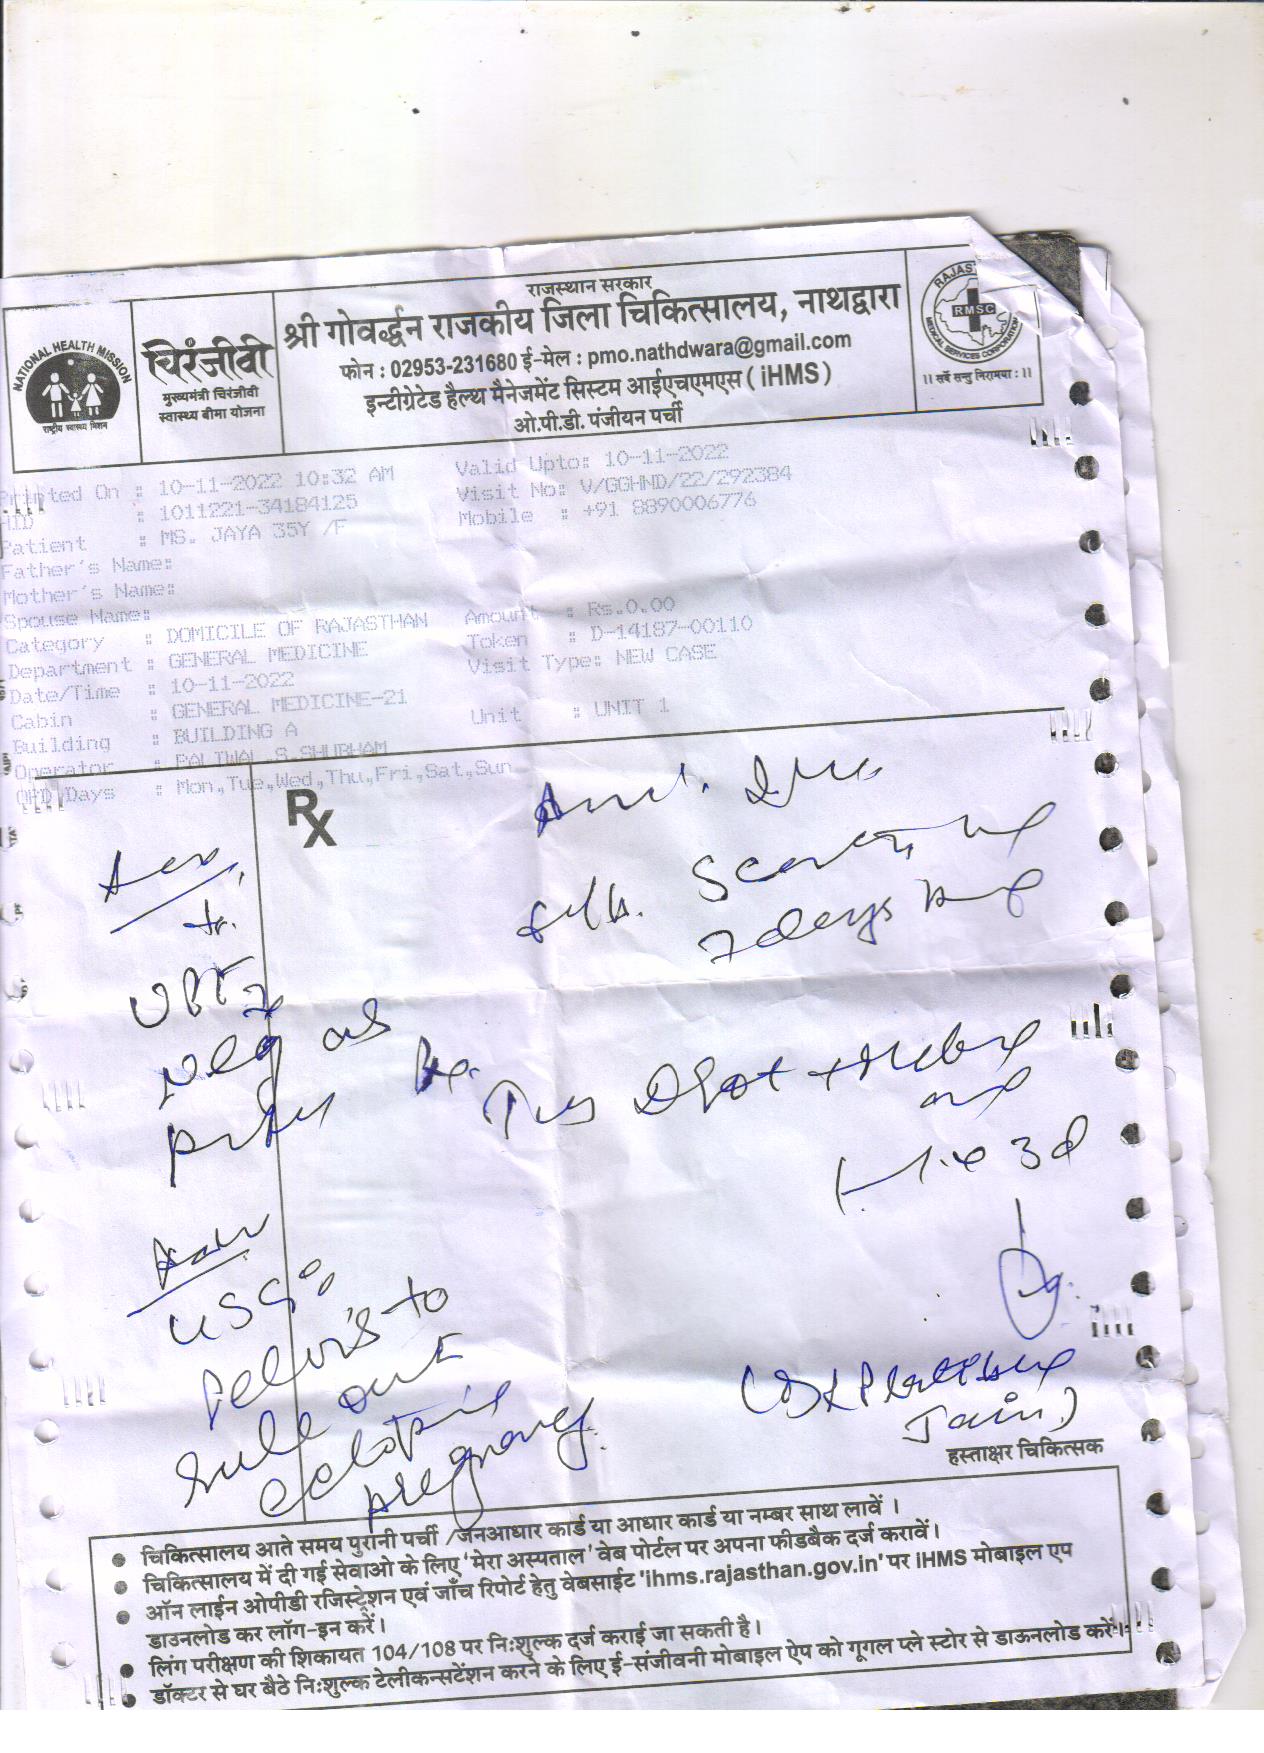 राजस्थान सरकार
श्री गोवर्द्धन राजकीय जिला चिकित्सालय, नाथद्वारा
फोन : 02953-231680 ई-मेल : pmo.nathdwara@gmail.com
इन्टीग्रेटेड हैल्थ मैनेजमेंट सिस्टम आईएचएमएस ( iHMS )
ओ.पी.डी. पंजीयन पर्ची
NATIONAL HEALTH MISSION
राष्ट्रीय स्वास्थ्य मिशन
चिरंजीवी
मुख्यमंत्री चिरंजीवी
स्वास्थ्य बीमा योजना
RAJAS
RMSC
MEDICAL SERVICES CORPORATION
।। सर्वे सन्तु निरामया : ।।
Printed On : 10-11-2022 10:32 AM Valid Upto: 10-11-2022
HID : 1011221-34184125 Visit No: V/GGHND/22/292384
Patient : MS. JAYA 35Y /F Mobile : +91 8890006776
Father's Name:
Mother's Name:
Spouse Name:
Category : DOMICILE OF RAJASTHAN Amount : Rs.0.00
Department : GENERAL MEDICINE Token : D-14187-00110
Date/Time : 10-11-2022 Visit Type: NEW CASE
Cabin : GENERAL MEDICINE-21
Building : BUILDING A Unit : UNIT 1
Operator : PALIWAL S.SHUBHAM
OPD Days : Mon,Tue,Wed,Thu,Fri,Sat,Sun
Rx
7 days
UPT
neg as
USG:
Pelvis to
rule out
ectopic
pregnancy.
Jain)
हस्ताक्षर चिकित्सक
● चिकित्सालय आते समय पुरानी पर्ची /जनआधार कार्ड या आधार कार्ड या नम्बर साथ लावें ।
● चिकित्सालय में दी गई सेवाओ के लिए 'मेरा अस्पताल' वेब पोर्टल पर अपना फीडबैक दर्ज करावें।
● ऑन लाईन ओपीडी रजिस्ट्रेशन एवं जाँच रिपोर्ट हेतु वेबसाईट 'ihms.rajasthan.gov.in' पर iHMS मोबाइल एप
डाउनलोड कर लॉग-इन करें।
● लिंग परीक्षण की शिकायत 104/108 पर निःशुल्क दर्ज कराई जा सकती है।
● डॉक्टर से घर बैठे निःशुल्क टेलीकन्सटेंशन करने के लिए ई-संजीवनी मोबाइल ऐप को गूगल प्ले स्टोर से डाऊनलोड करें।